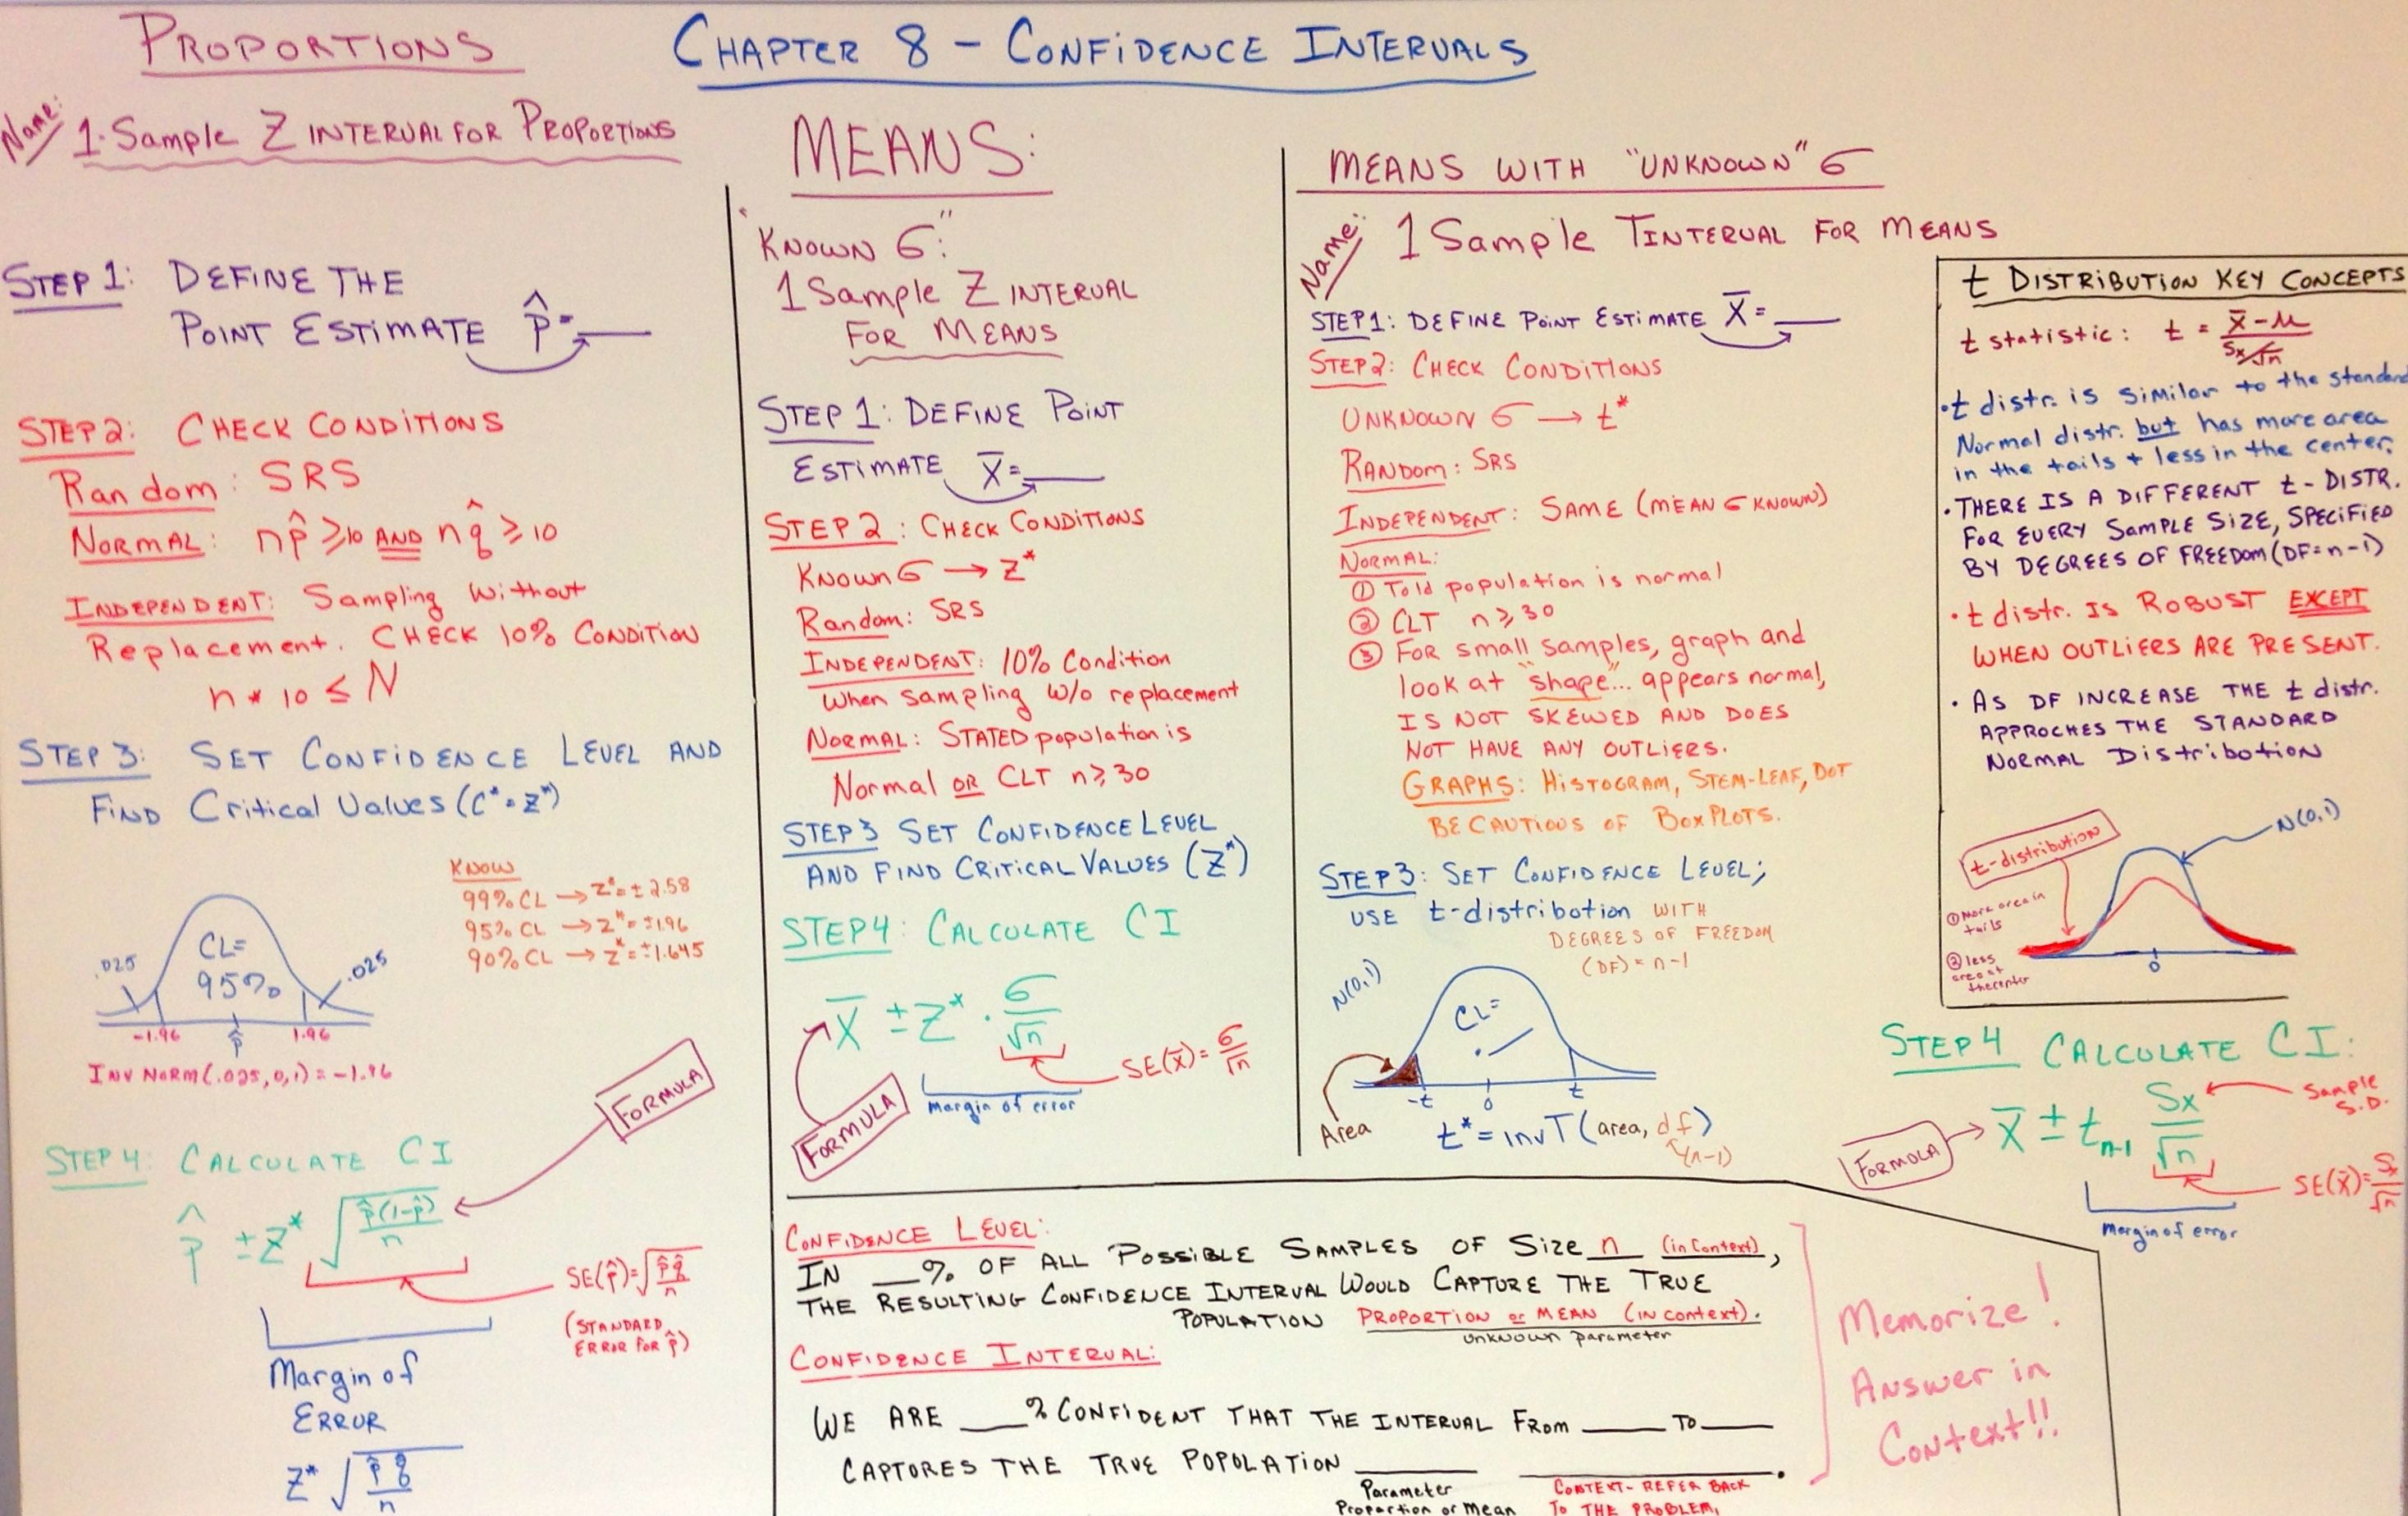 PROPORTIONS
CHAPTER 8 - CONFIDENCE INTERVALS
Name:
1-Sample Z INTERVAL FOR PROPORTIONS
STEP 1: DEFINE THE
POINT ESTIMATE p̂ = ____
STEP 2: CHECK CONDITIONS
Random: SRS
NORMAL: np̂ ≥ 10 AND nq̂ ≥ 10
INDEPENDENT: Sampling Without
Replacement. CHECK 10% CONDITION
n * 10 ≤ N
STEP 3: SET CONFIDENCE LEVEL AND
FIND Critical Values (C* = Z*)
KNOW
99% CL → Z* = ± 2.58
95% CL → Z* = ±1.96
90% CL → Z* = ±1.645
CL=
95%
.025
.025
-1.96
p̂
1.96
INV NORM(.025,0,1) = -1.96
FORMULA
STEP 4: CALCULATE CI
p̂ ± Z* √(p̂(1-p̂)/n)
SE(p̂) = √(p̂q̂/n)
(STANDARD
ERROR FOR p̂)
Margin of
ERROR
Z* √(p̂q̂/n)
MEANS:
"KNOWN σ:"
1 Sample Z INTERVAL
FOR MEANS
STEP 1: DEFINE POINT
ESTIMATE x̄ = ____
STEP 2: CHECK CONDITIONS
KNOWN σ → Z*
Random: SRS
INDEPENDENT: 10% Condition
when sampling w/o replacement
NORMAL: STATED population is
Normal OR CLT n ≥ 30
STEP 3 SET CONFIDENCE LEVEL
AND FIND CRITICAL VALUES (Z*)
STEP 4: CALCULATE CI
x̄ ± Z* · σ/√n
SE(x̄) = σ/√n
Margin of error
FORMULA
MEANS WITH "UNKNOWN" σ
Name:
1 Sample T INTERVAL FOR MEANS
STEP 1: DEFINE POINT ESTIMATE x̄ = ____
STEP 2: CHECK CONDITIONS
UNKNOWN σ → t*
RANDOM: SRS
INDEPENDENT: SAME (MEAN σ KNOWN)
NORMAL:
① Told population is normal
② CLT n ≥ 30
③ FOR small samples, graph and
look at "shape"... appears normal,
IS NOT SKEWED AND DOES
NOT HAVE ANY OUTLIERS.
GRAPHS: HISTOGRAM, STEM-LEAF, DOT
BE CAUTIOUS OF BOXPLOTS.
STEP 3: SET CONFIDENCE LEVEL;
USE t-distribution WITH
DEGREES OF FREEDOM
(DF) = n-1
N(0,1)
CL=
-t
0
t
Area
t* = invT(area, df)
(n-1)
t DISTRIBUTION KEY CONCEPTS
t statistic: t = (x̄ - μ)/(Sx/√n)
• t distr. is similar to the standard
Normal distr. but has more area
in the tails + less in the center.
• THERE IS A DIFFERENT t-DISTR.
FOR EVERY SAMPLE SIZE, SPECIFIED
BY DEGREES OF FREEDOM (DF = n-1)
• t distr. IS ROBUST EXCEPT
WHEN OUTLIERS ARE PRESENT.
• AS DF INCREASE THE t distr.
APPROCHES THE STANDARD
NORMAL Distribution
t-distribution
N(0,1)
① More area in
tails
② less
area at
the center
0
STEP 4 CALCULATE CI:
x̄ ± t n-1 Sx/√n
Sample
S.D.
FORMULA
SE(x̄) = Sx/√n
Margin of error
CONFIDENCE LEVEL:
IN ___% OF ALL POSSIBLE SAMPLES OF SIZE n (in Context),
THE RESULTING CONFIDENCE INTERVAL WOULD CAPTURE THE TRUE
POPULATION PROPORTION or MEAN (IN context).
unknown parameter
CONFIDENCE INTERVAL:
WE ARE ____% CONFIDENT THAT THE INTERVAL FROM ____ TO ____
CAPTURES THE TRUE POPULATION ____ ____.
Parameter
Proportion or Mean
CONTEXT - REFER BACK
TO THE PROBLEM.
Memorize!
Answer in
Context!!